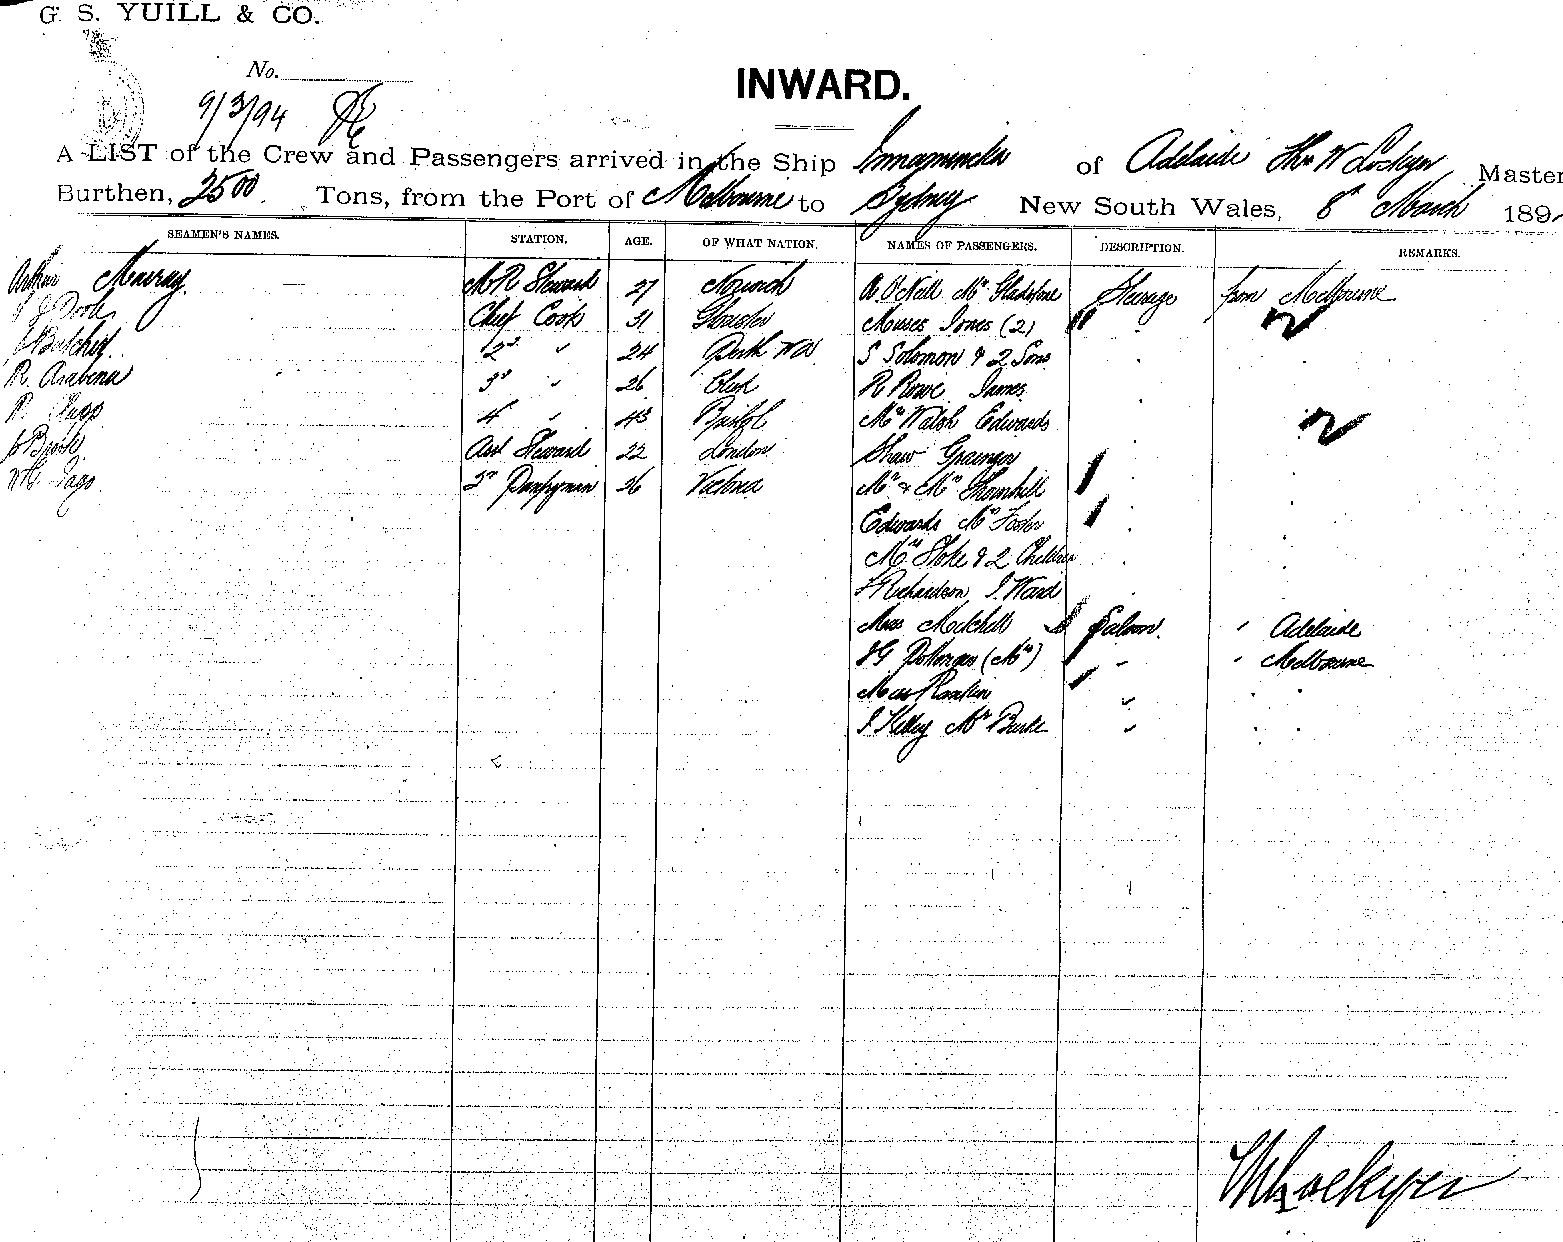 G. S. YUILL & CO.
No.
9/3/94
INWARD.
A LIST of the Crew and Passengers arrived in the Ship Innamincka of Adelaide Thos W Lockyer Master
Burthen, 2500 Tons, from the Port of Melbourne to Sydney New South Wales, 8th March 189
SEAMEN'S NAMES. STATION. AGE. OF WHAT NATION. NAMES OF PASSENGERS. DESCRIPTION. REMARKS.
Arthur Murray M R Steward 27 Norwich A O'Neill Mrs Gladstone Steerage from Melbourne
Chief Cook 31 Gloucester Moses Jones (2) "
Butcher 2nd " 24 Perth WA S Solomon & 2 Sons
R. Arabena 3rd " 26 R Rowe James
4 " 43 Bristol Mrs Walsh Edwards
Brook Asst Steward 22 London Shaw Grainger
3rd Pantryman 26 Victoria Mr & Mrs Thornhill
Edwards Mrs Foster
Mrs Stoke & 2 Children
Richardson J. Ward
Miss Mitchell Saloon " Adelaide
(Mrs) " " Melbourne
Miss "
J Kelley Mrs Burke "
W Lockyer